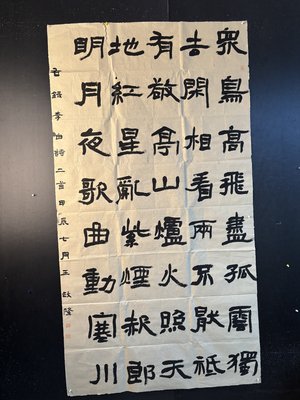 衆鳥高飛盡孤雲獨
去閑相看兩不厭祗
有敬亭山爐火照天
地紅星亂紫煙赧郎
明月夜歌曲動寒川
右錄李白詩二首甲辰七月王啟隆